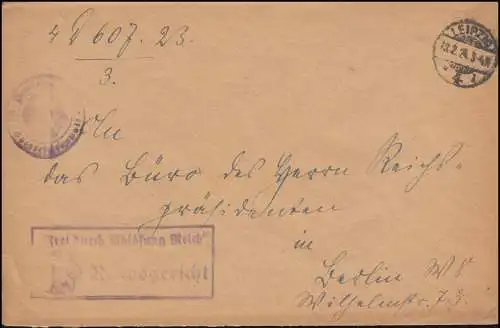 4 D 607. 23.
3.
LEIPZIG
13.2.24. 3-4 N
An
das Büro des Herrn Reichs-
präsidenten
in
Berlin W 8
Wilhelmstr. 73.
"Frei durch Ablösung Reich"
Reichsgericht